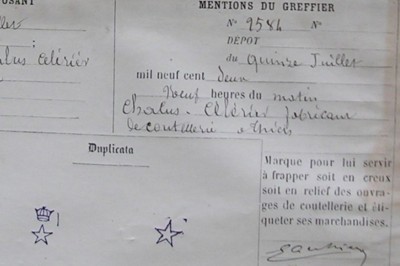 OSANT
MENTIONS DU GREFFIER
N° 9584 N°
DEPOT
du Quinze Juillet
mil neuf cent deux
Neuf heures du matin
Chalus-Célérier fabricant
de coutellerie à Thiers
Duplicata
Marque pour lui servir
à frapper soit en creux
soit en relief des ouvra-
ges de coutellerie et éti-
queter ses marchandises.